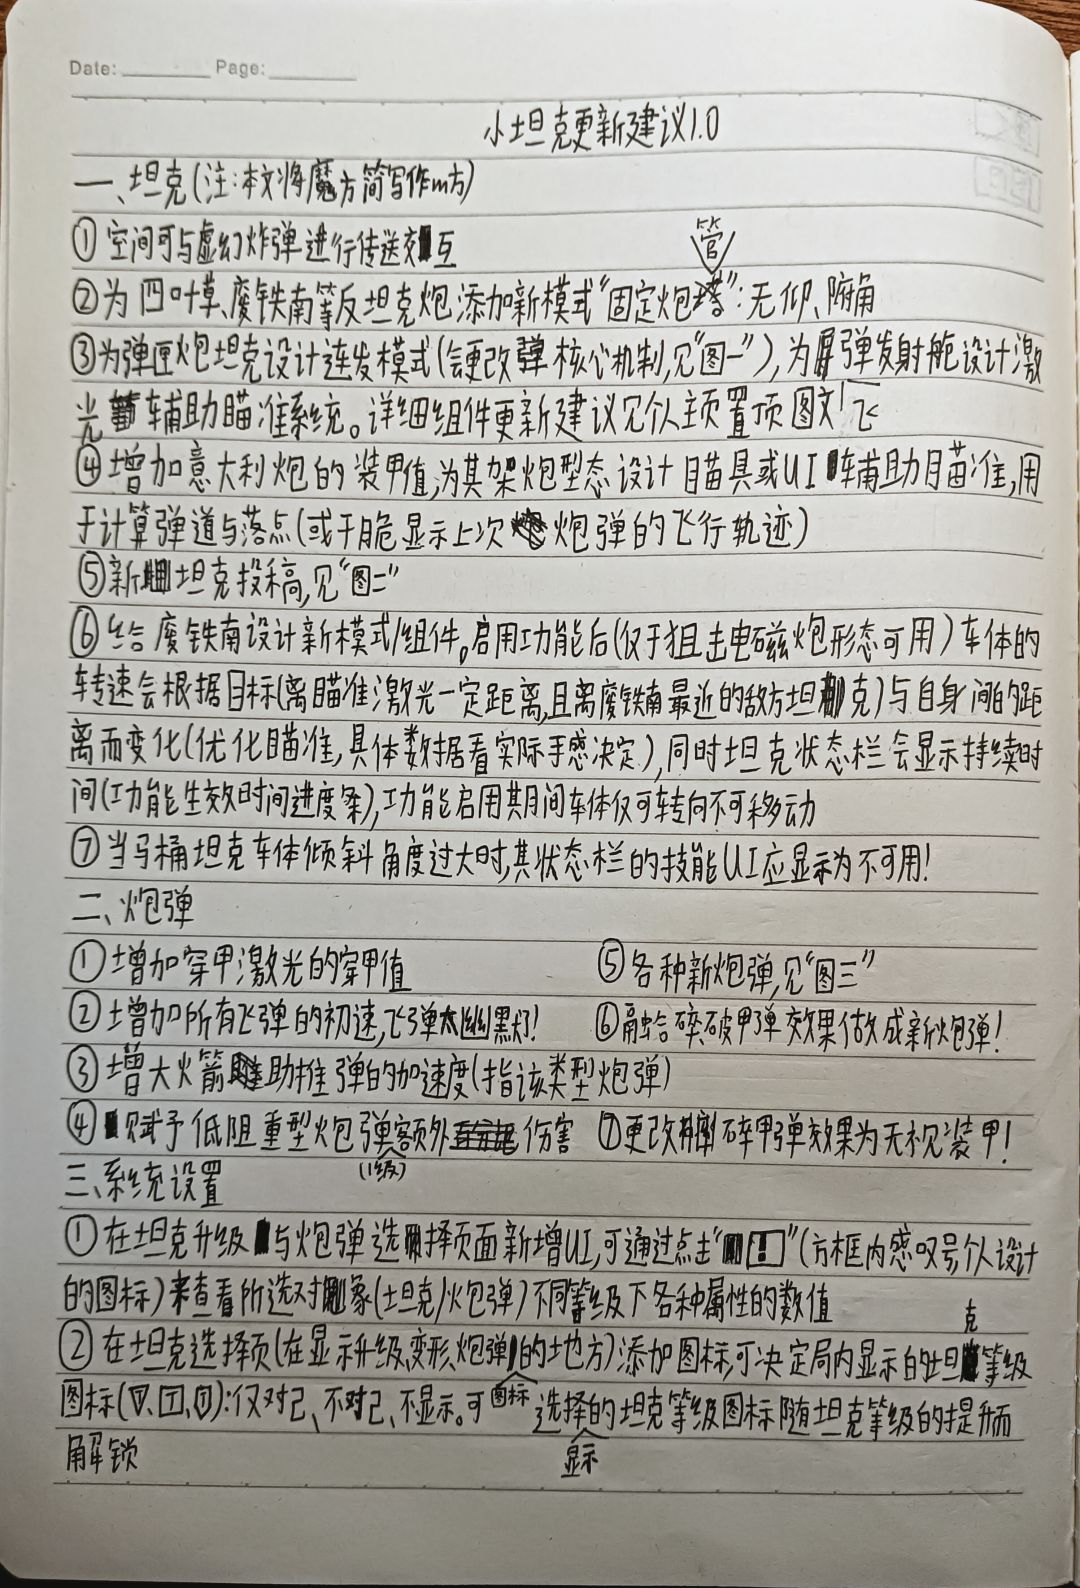 Date: Page:
小坦克更新建议1.0
一、坦克(注:本文将魔方简写作m方)
①空间可与虚幻炸弹进行传送交互
管
②为四叶草、废铁南等反坦克炮添加新模式“固定炮塔”:无仰、俯角
③为弹匣炮坦克设计连发模式(会更改弹核心机制,见“图一”),为屏弹发射舱设计激
光辅助瞄准系统。详细组件更新建议见个人主页置顶图文!飞
④增加意大利炮的装甲值,为其架炮型态设计瞄具或UI辅助瞄准,用
于计算弹道与落点(或干脆显示上次炮弹的飞行轨迹)
⑤新坦克投稿,见“图二”
⑥给废铁南设计新模式/组件。启用功能后(仅于狙击电磁炮形态可用)车体的
转速会根据目标(离瞄准激光一定距离,且离废铁南最近的敌方坦克)与自身间的距
离而变化(优化瞄准,具体数据看实际手感决定),同时坦克状态栏会显示持续时
间(功能生效时间进度条),功能启用期间车体仅可转向不可移动
⑦当马桶坦克车体倾斜角度过大时,其状态栏的技能UI应显示为不可用!
二、炮弹
①增加穿甲激光的穿甲值 ⑤各种新炮弹,见“图三”
②增加所有飞弹的初速,飞弹太幽默!  ⑥融合碎破甲弹效果做成新炮弹!
③增大火箭助推弹的加速度(指该类型炮弹)
④赋予低阻重型炮弹额外伤害 ⑦更改碎甲弹效果为无视装甲!
(1级)
三、系统设置
①在坦克升级与炮弹选择页面新增UI,可通过点击“!”(方框内感叹号,个人设计
的图标)来查看所选对象(坦克/炮弹)不同等级下各种属性的数值
克
②在坦克选择页(在显示升级、变形、炮弹的地方)添加图标,可决定局内显示的坦等级
图标():仅对己、不对己、不显示。可图标选择的坦克等级图标随坦克等级的提升而
解锁 显示